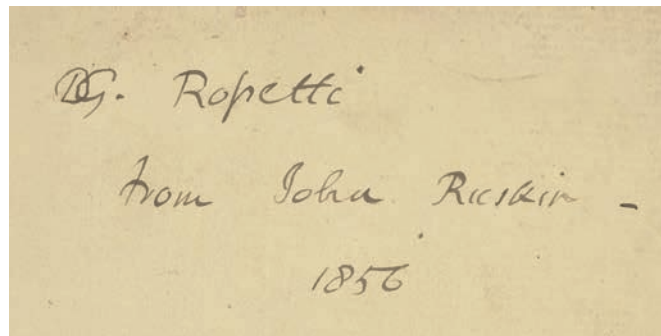 DG. Rossetti
from John Ruskin -
1856